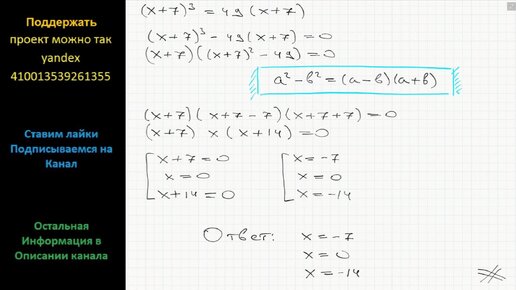 Поддержать
проект можно так
yandex
410013539261355
Ставим лайки
Подписываемся на
Канал
Остальная
Информация в
Описании канала
(x+7)³ = 49(x+7)
(x+7)³ - 49(x+7) = 0
(x+7)((x+7)² - 49) = 0
a² - b² = (a-b)(a+b)
(x+7)(x+7-7)(x+7+7) = 0
(x+7) x (x+14) = 0
x+7=0 x=-7
x=0 x=0
x+14=0 x=-14
Ответ: x=-7
x=0
x=-14